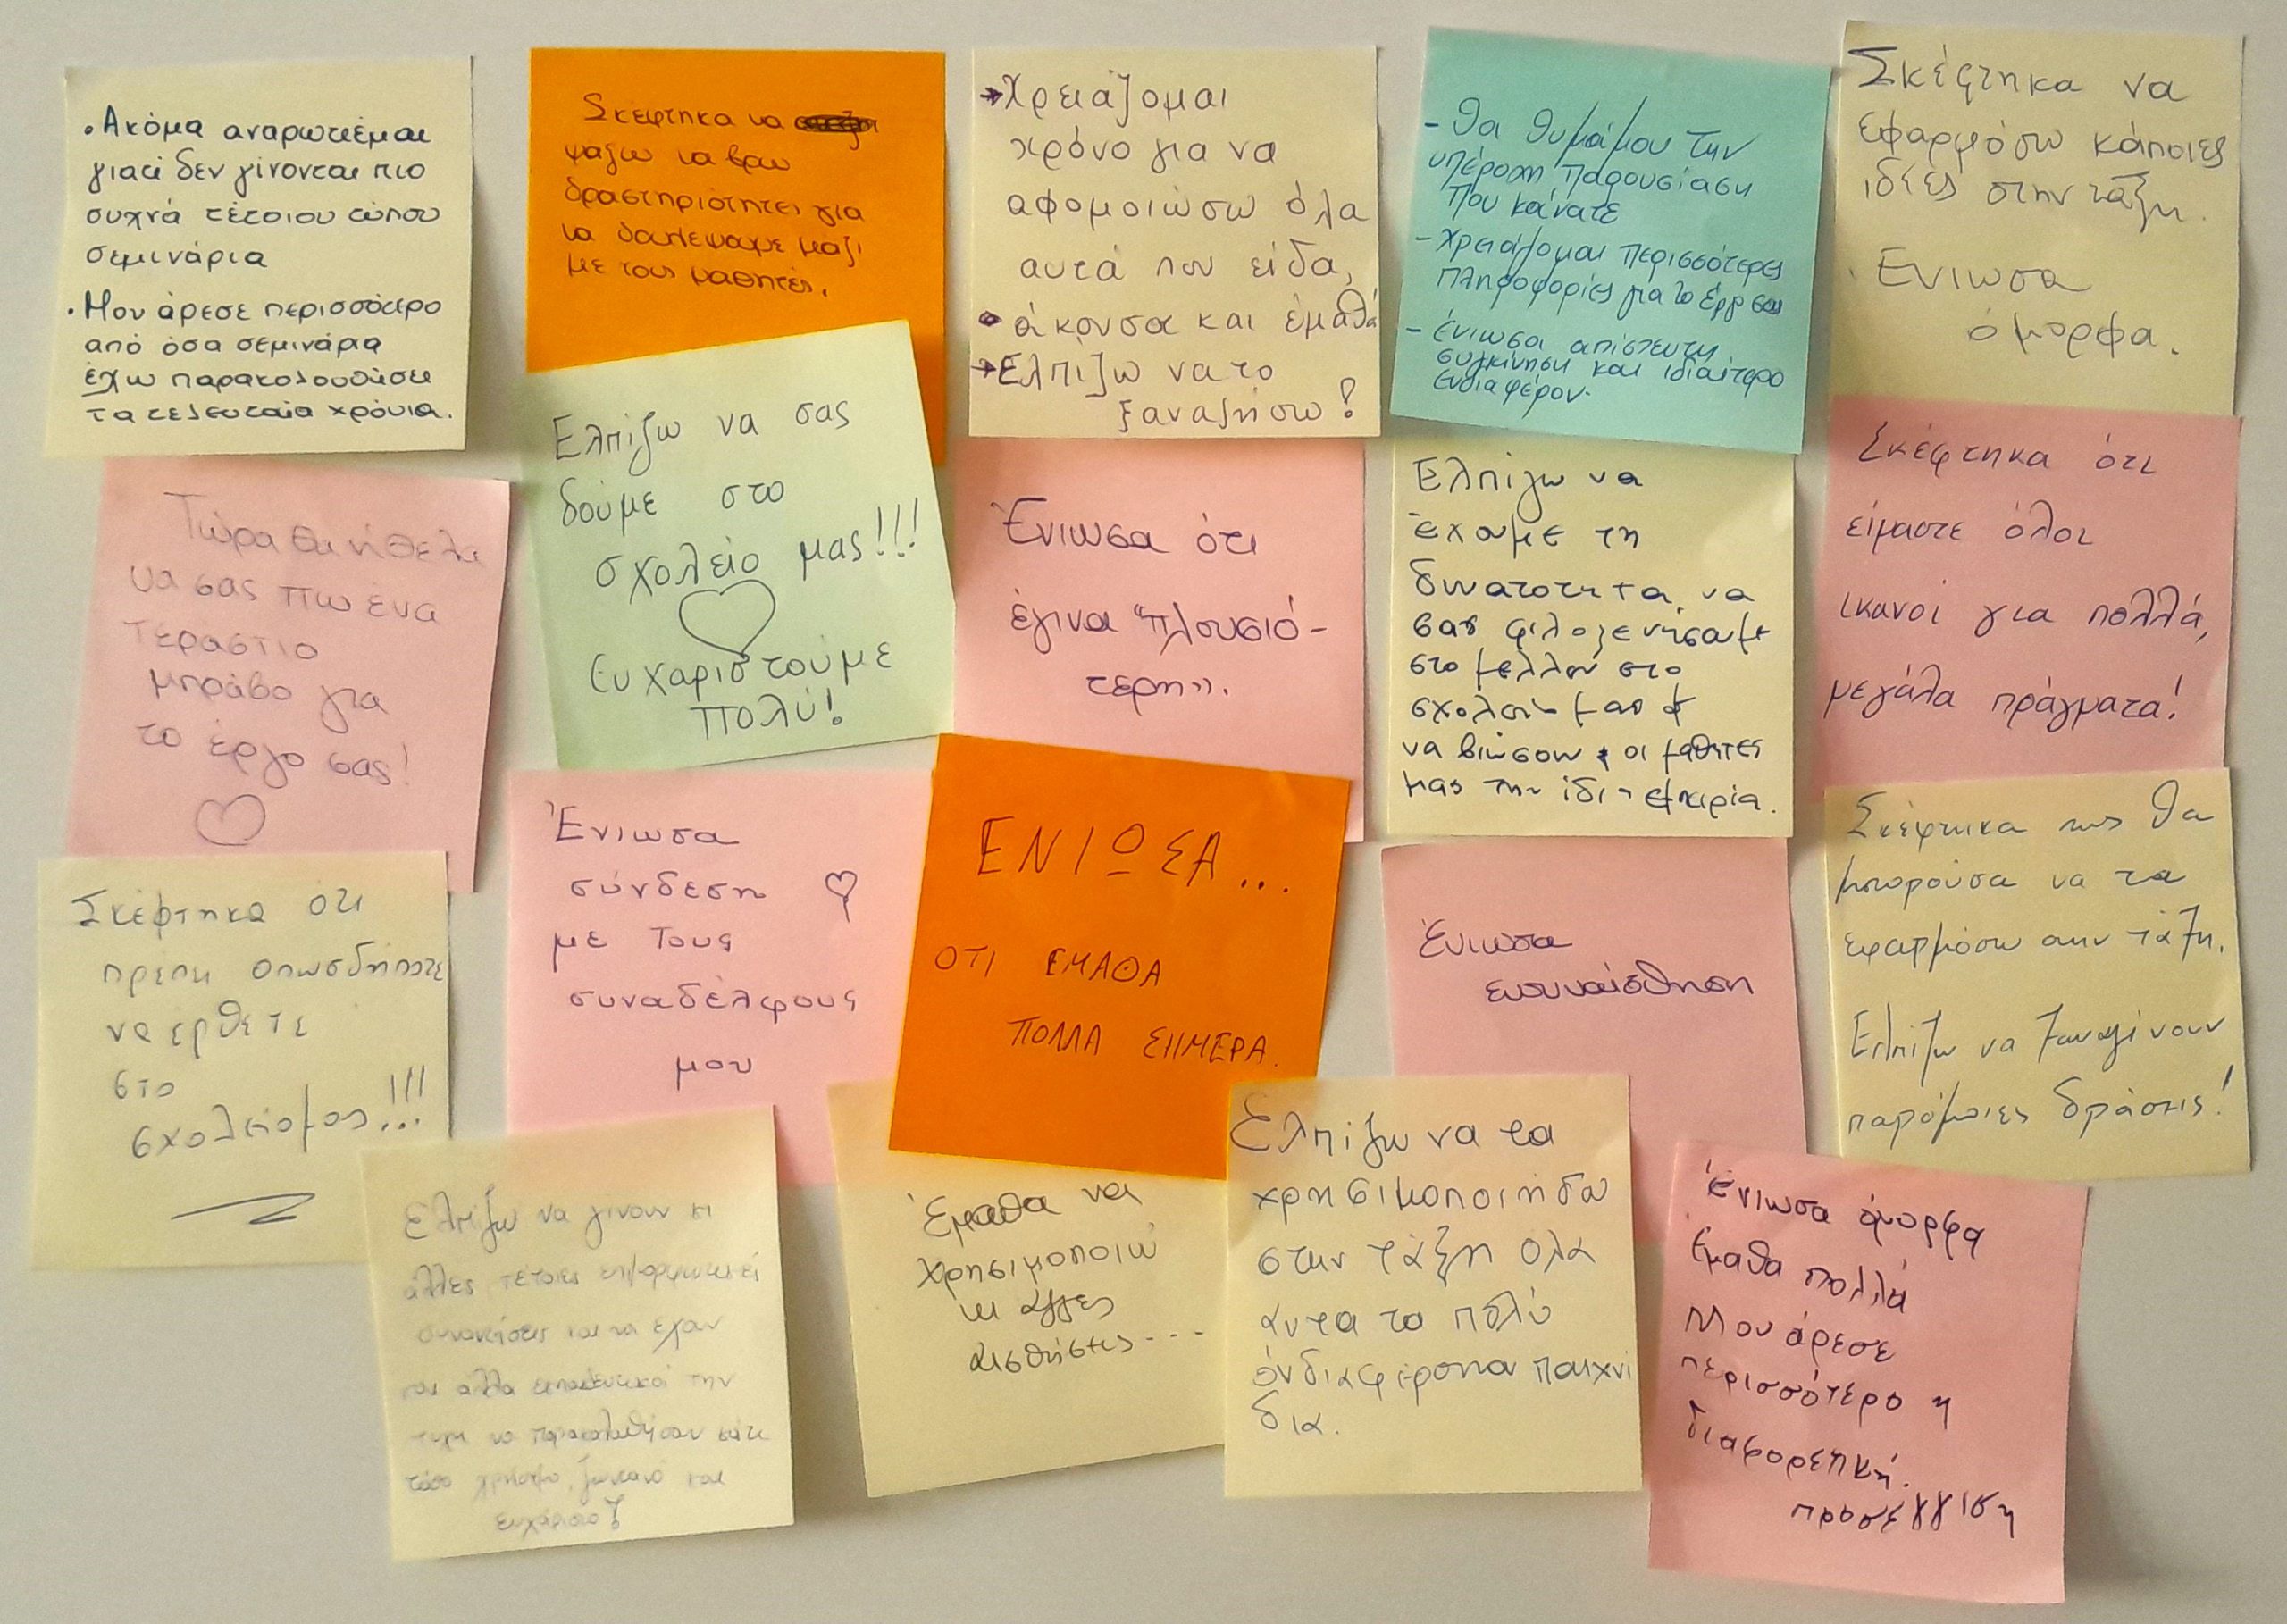 • Ακόμα αναρωτιέμαι
γιατί δεν γίνονται πιο
συχνά τέτοιου τύπου
σεμινάρια
• Μου άρεσε περισσότερο
από όσα σεμινάρια
έχω παρακολουθήσει
τα τελευταία χρόνια.
Σκέφτηκα να
ψάξω να βρω
δραστηριότητες για
να δουλέψουμε μαζί
με τους μαθητές.
→ Χρειάζομαι
χρόνο για να
αφομοιώσω όλα
αυτά που είδα,
• άκουσα και έμαθα
→ Ελπίζω να το
ξαναζήσω!
- Θα θυμάμαι την
υπέροχη παρουσίαση
που κάνατε
- Χρειάζομαι περισσότερες
πληροφορίες για το έργο σας
- Ένιωσα απίστευτη
συγκίνηση και ιδιαίτερο
ενδιαφέρον.
Σκέφτηκα να
εφαρμόσω κάποιες
ιδέες στην τάξη.
Ένιωσα
όμορφα.
Τώρα θα ήθελα
να σας πω ένα
τεράστιο
μπράβο για
το έργο σας!
Ελπίζω να σας
δούμε στο
σχολείο μας!!!
Ευχαριστούμε
πολύ!
Ένιωσα ότι
έγινα "πλουσιό-
τερη».
Ελπίζω να
έχουμε τη
δυνατότητα να
σας φιλοξενήσουμε
στο μέλλον στο
σχολείο μας &
να βιώσουν & οι μαθητές
μας την ίδια εμπειρία.
Σκέφτηκα ότι
είμαστε όλοι
ικανοί για πολλά,
μεγάλα πράγματα!
Σκέφτηκα ότι
πρέπει οπωσδήποτε
να έρθετε
στο
σχολείο μας!!!
Ένιωσα
σύνδεση
με τους
συναδέλφους
μου
ΕΝΙΩΣΑ...
ΟΤΙ ΕΜΑΘΑ
ΠΟΛΛΑ ΣΗΜΕΡΑ.
Ένιωσα
ενσυναίσθηση
Σκέφτηκα πως θα
μπορούσα να τα
εφαρμόσω στην τάξη.
Ελπίζω να ξαναγίνουν
παρόμοιες δράσεις!
Ελπίζω να γίνουν κι
άλλες τέτοιες επιμορφωτικές
συναντήσεις και να έχουν
και άλλοι εκπαιδευτικοί την
τύχη να παρακολουθήσουν κάτι
τόσο χρήσιμο, ζωντανό και
ευχάριστο!
Έμαθα να
χρησιμοποιώ
κι άλλες
αισθήσεις---
Ελπίζω να τα
χρησιμοποιήσω
στην τάξη όλα
αυτά τα πολύ
ενδιαφέροντα παιχνί
δια.
Ένιωσα όμορφα
Έμαθα πολλά
Μου άρεσε
περισσότερο η
διαφορετική.
προσέγγιση